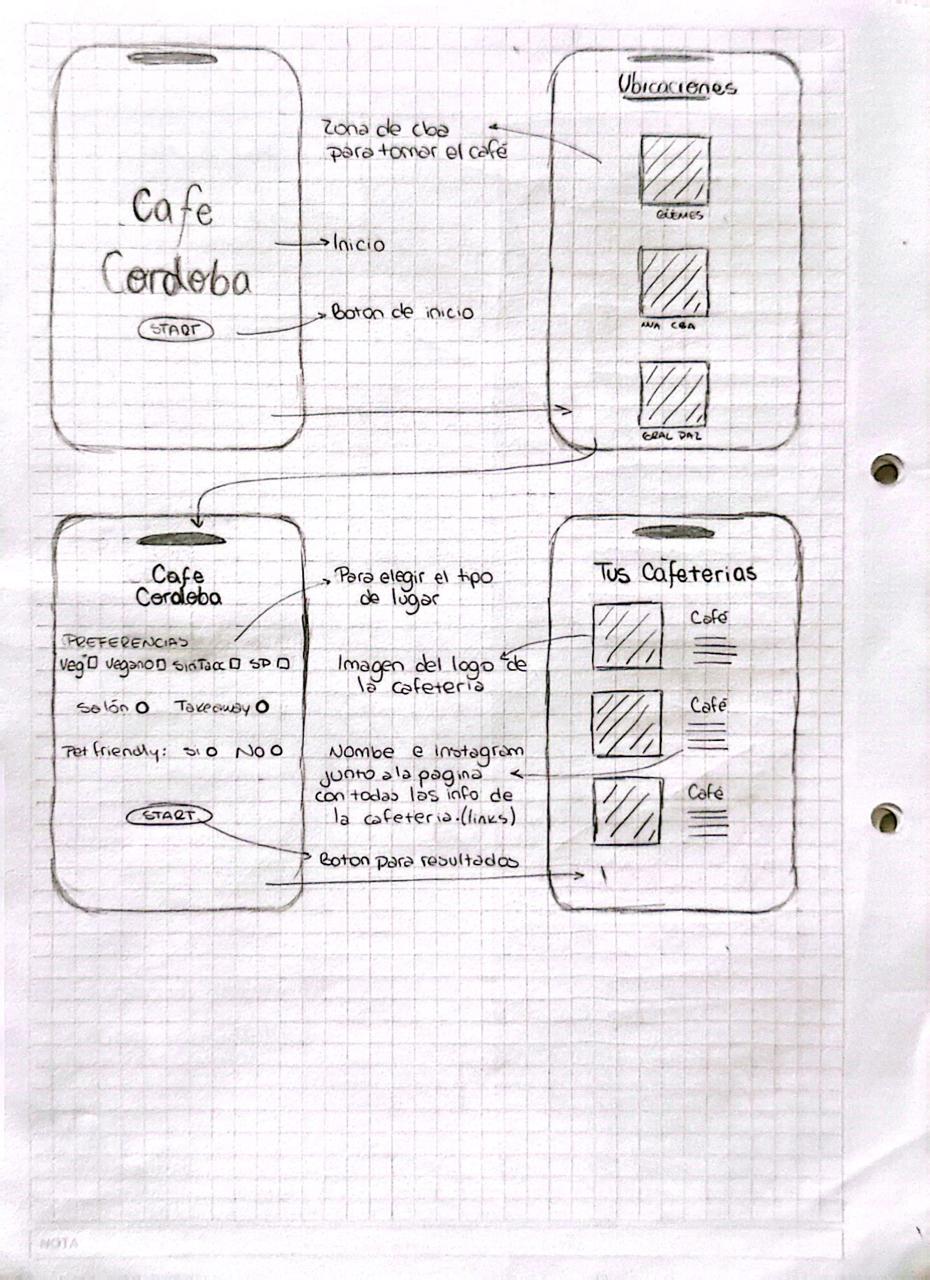 Cafe
Cordoba
START
Inicio
Boton de inicio
Zona de cba
para tomar el café
Ubicaciones
GÜEMES
NVA CBA
GRAL PAZ
Cafe
Cordoba
PREFERENCIAS
Veg Vegano SinTacc SP
Salón Takeaway
Pet friendly: SI NO
START
Para elegir el tipo
de lugar
Imagen del logo de
la cafeteria
Nombe e instagram
junto a la pagina
con todas las info de
la cafeteria.(links)
Boton para resultados
Tus Cafeterias
Café
Café
Café
NOTA